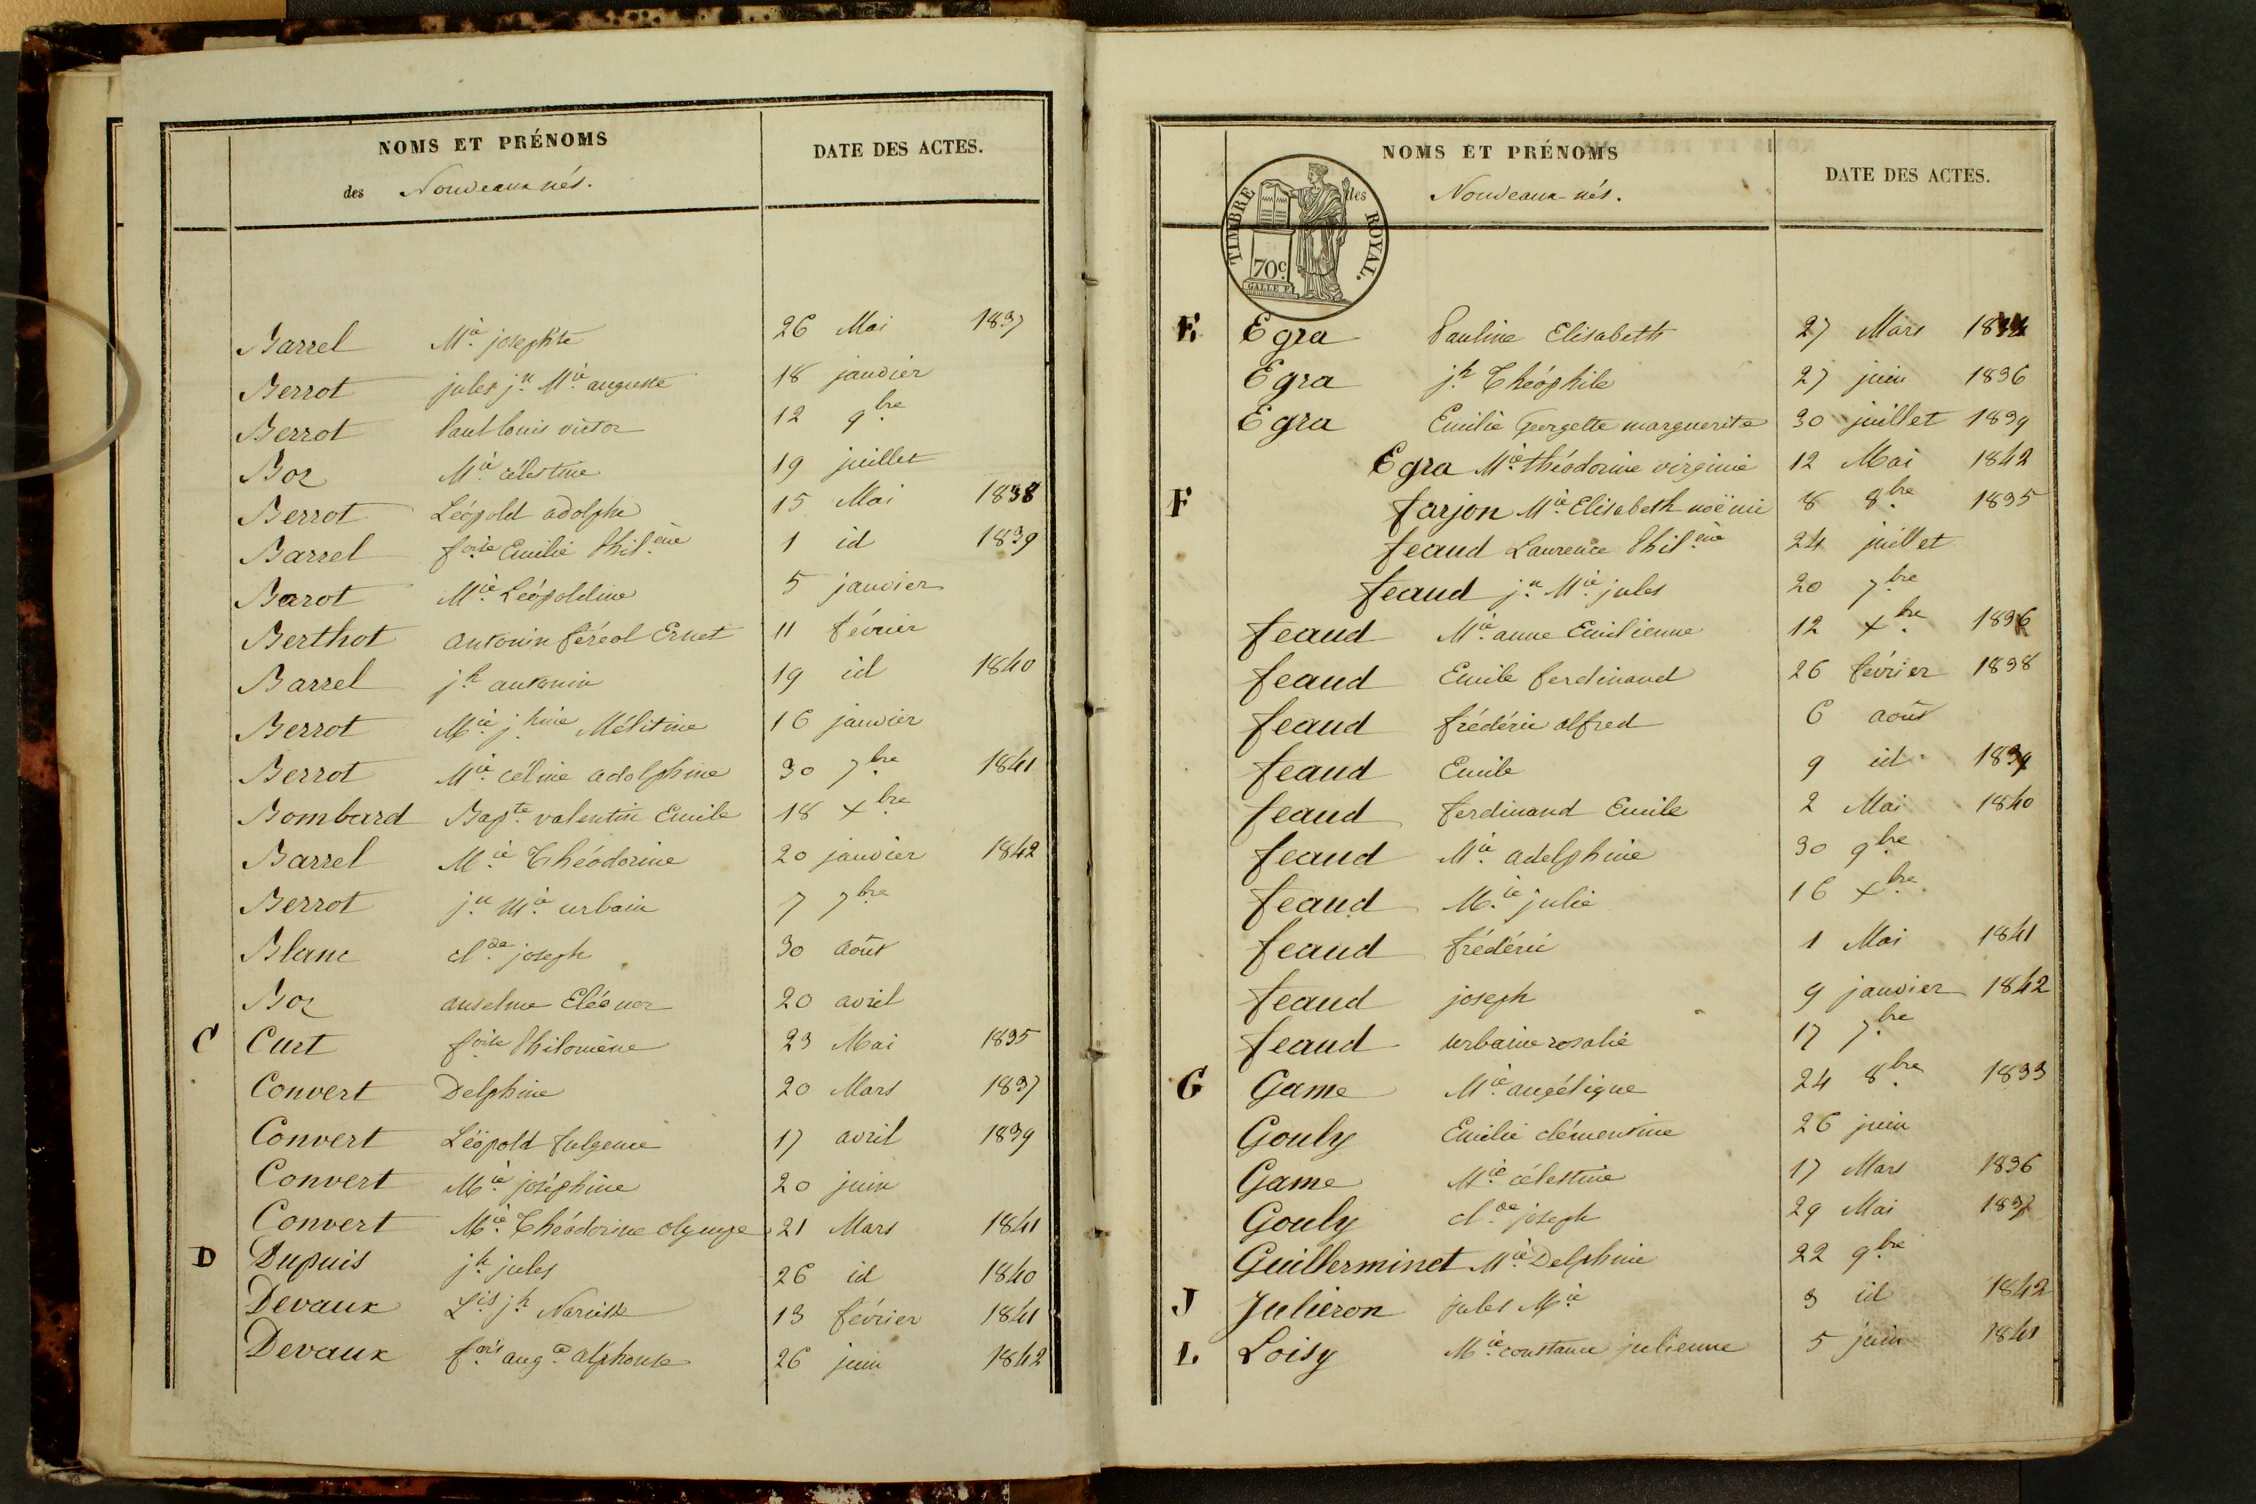 NOMS ET PRÉNOMS
des Nouveaux nés.
DATE DES ACTES.
Barrel M.ie josephte 26 Mai 1837
Berrot jules j.n M.ie auguste 18 janvier
Berrot Paul louis victor 12 9.bre
Boz M.ie célestine 19 juillet
Berrot Léopold adolphe 15 Mai 1838
Barrel f.oise Emilie Phil.ène 1 id 1839
Barot M.ie Léopoldine 5 janvier
Berthot antonin féréol Ernet 11 février
Barrel j.h antonin 19 id 1840
Berrot M.ie j.hine Mélitine 16 janvier
Berrot M.ie céline adolphine 30 7.bre 1841
Bombard Bap.te valentin Emile 18 x.bre
Barrel M.ie Théodorine 20 janvier 1842
Berrot j.n M.ie urbain 7 7.bre
Blanc cl.de joseph 30 août
Boz anselme Eléonor 20 avril
C Curt f.oise Philomène 23 Mai 1835
Convert Delphine 20 Mars 1837
Convert Léopold fulgence 17 avril 1839
Convert M.ie joséphine 20 juin
Convert M.ie Théodorine olympe 21 Mars 1841
D Dupuis j.h jules 26 id 1840
Devaux L.is j.h Narcisse 13 février 1841
Devaux f.ois aug.e alphonse 26 juin 1842
NOMS ET PRÉNOMS
des Nouveaux nés.
DATE DES ACTES.
TIMBRE ROYAL.
70c.
GALLE F.
E Egra Pauline Elisabeth 27 Mars
Egra j.h Théophile 27 juin 1836
Egra Emilie Georgette marguerite 30 juillet 1839
Egra M.ie théodorine virginie 12 Mai 1842
F farjon M.ie Elisabeth noëmi 8 8.bre 1835
feaud Laurence Phil.ène 24 juillet
feaud j.n M.ie jules 20 7.bre
feaud M.ie anne Emilienne 12 x.bre 1836
feaud Emile ferdinand 26 février 1838
feaud frédéric alfred 6 août
feaud Emile 9 id 1839
feaud ferdinand Emile 2 Mai 1840
feaud M.ie adelphine 30 9.bre
feaud M.ie julie 16 x.bre
feaud frédéric 1 Mai 1841
feaud joseph 9 janvier 1842
feaud urbaine rosalie 17 7.bre
G Game M.ie angélique 24 8.bre 1833
Gouly Emilie clémentine 26 juin
Game M.ie célestine 17 Mars 1836
Gouly cl.de joseph 29 Mai 1837
Guillerminet M.ie Delphine 22 9.bre
J Juliéron jules M.ie 3 id 1842
L Loisy M.ie constance julienne 5 juin 1841